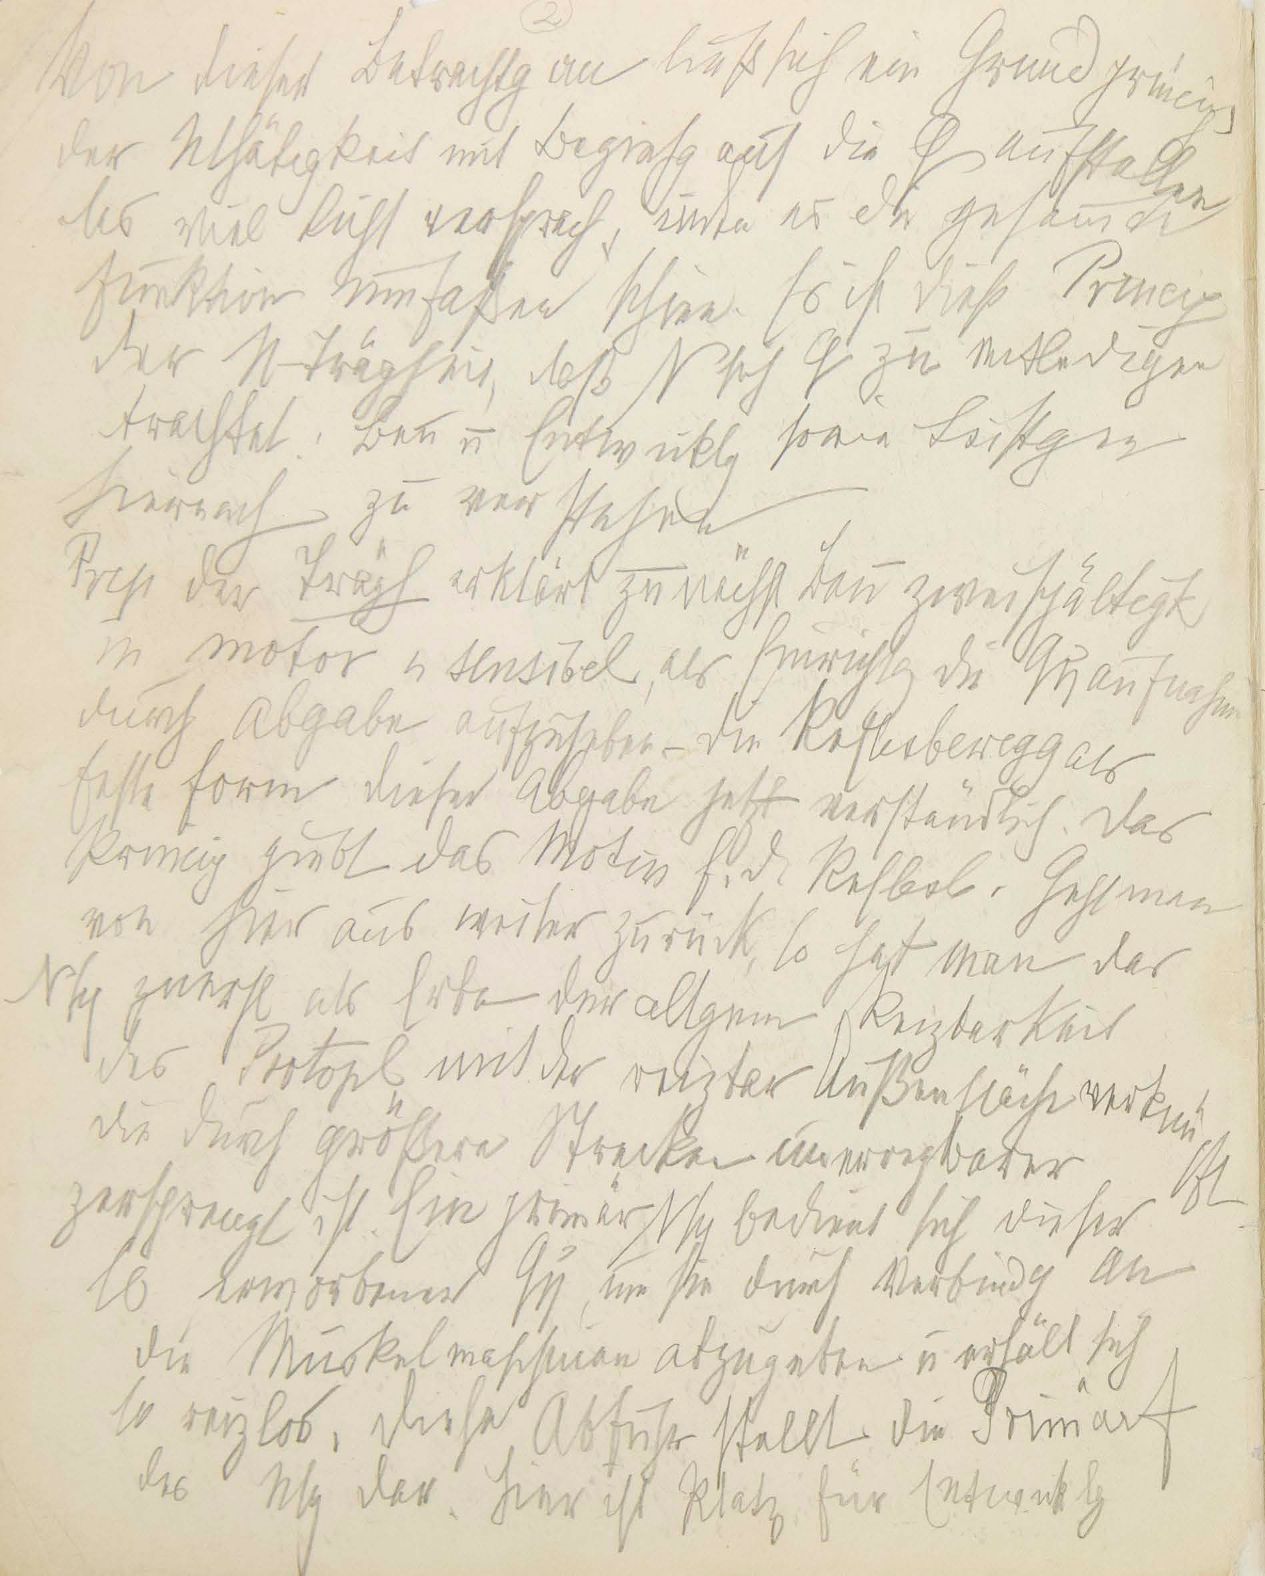 2
Von dieser Betrachtg an ließ sich ein Grundprincip
der Nthätigkeit mit Beziehg auf die Q aufstellen
das viel Licht versprach, indem es die gesam̅te
Funktion um̅faßen schien. Es ist dieß Princip
der N-Trägheit, daß N sich Q zu entledigen
trachtet. Bau u Entwicklg sowie Leistgen
hiernach zu verstehen
Prcp der Trägh erklärt zunächst Bau zweispältigk
in motor u sensibel, als Einrichtg die Qη̇ aufnahme
durch Abgabe aufzuheben – Die Reflexbewegg als
feste Form dieser Abgabe jetzt verständlich. Das
Princip giebt das Motiv f. d. Reflexb. Geht man
von hier aus weiter zurück, so hat man das
Nsy zuerst als Erbe der allgem Reizbarkeit
des Protopl mit der reizbar Außenfläche verknüpft
die durch größere Strecken unerregbarer
zersprengt ist. Ein primär Nsy bedient sich dieser
so erworbenen Qη̇, um sie durch Verbindg an
die Muskelmaschinen abzugeben u erhält sich
so reizlos. Diese Abfuhr stellt die Primärf
des Nsy dar. Hier ist Platz für Entwicklg